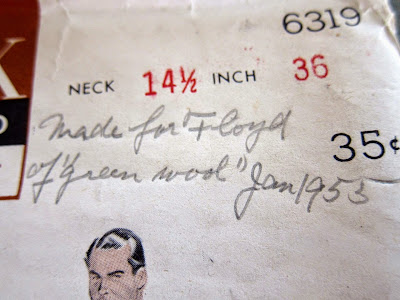 6319
NECK 14½ INCH 36
Made for "Floyd
35¢
of "green wool" Jan 1953